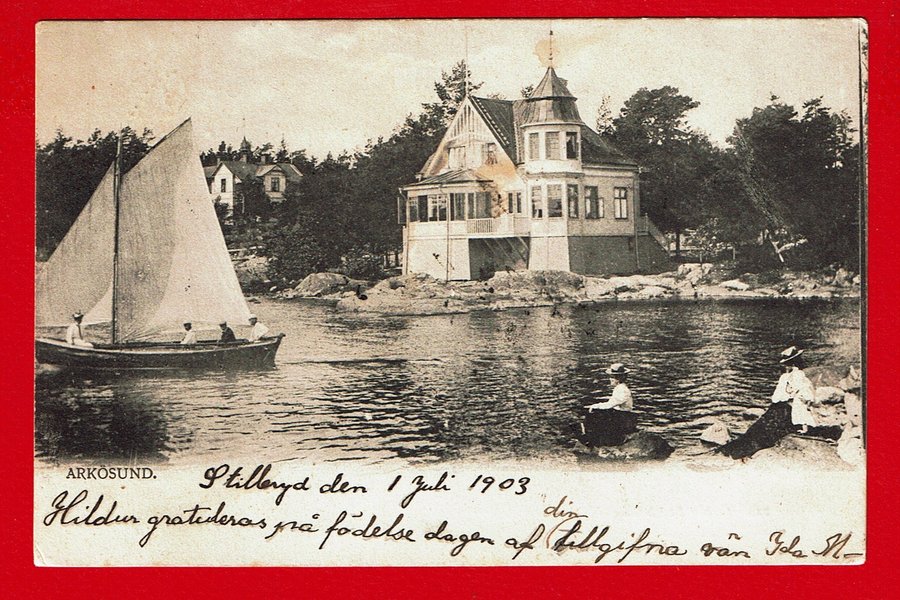 ARKÖSUND.
Stilleryd den 1 Juli 1903
din
Hildur gratuleras på födelse dagen af tillgifna vän Ida M-